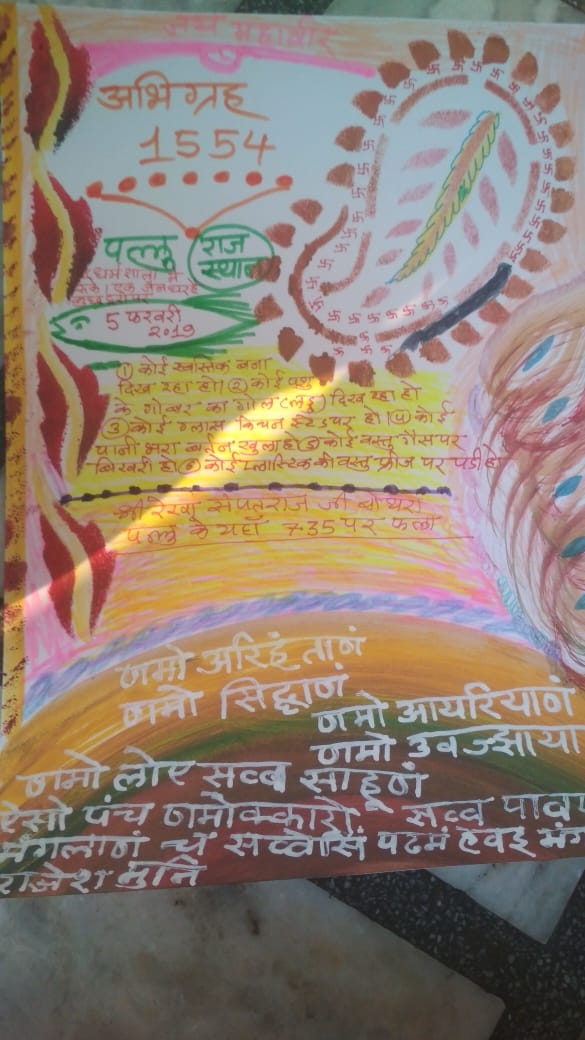 जय महावीर
अभिग्रह
1554
पल्लू राज
स्थान
धर्मशाला में
रुके। एक जैन घर है
5 फरवरी
2019
① कोई स्वस्तिक बना
दिख रहा हो। ② कोई पशु
के गोबर का गोल (लड्डू) दिख रहा हो
③ कोई ग्लास किचन स्टेंड पर हो। ④ कोई
पानी भरा बर्तन खुला हो ⑤ कोई वस्तु गैस पर
बिखरी हो ⑥ कोई प्लास्टिक की वस्तु फ्रीज पर पड़ी हो
श्री रेखा संपतराज जी बोथरा
पल्लू के यहाँ 7.35 पर फला
णमो अरिहंताणं
णमो सिद्धाणं
णमो आयरियाणं
णमो उवज्झाया
णमो लोए सव्व साहूणं
ऐसो पंच णमोक्कारो सव्व पावप
मंगलाणं च सव्वेसिं पढमं हवइ मंग
राजेश मुनि